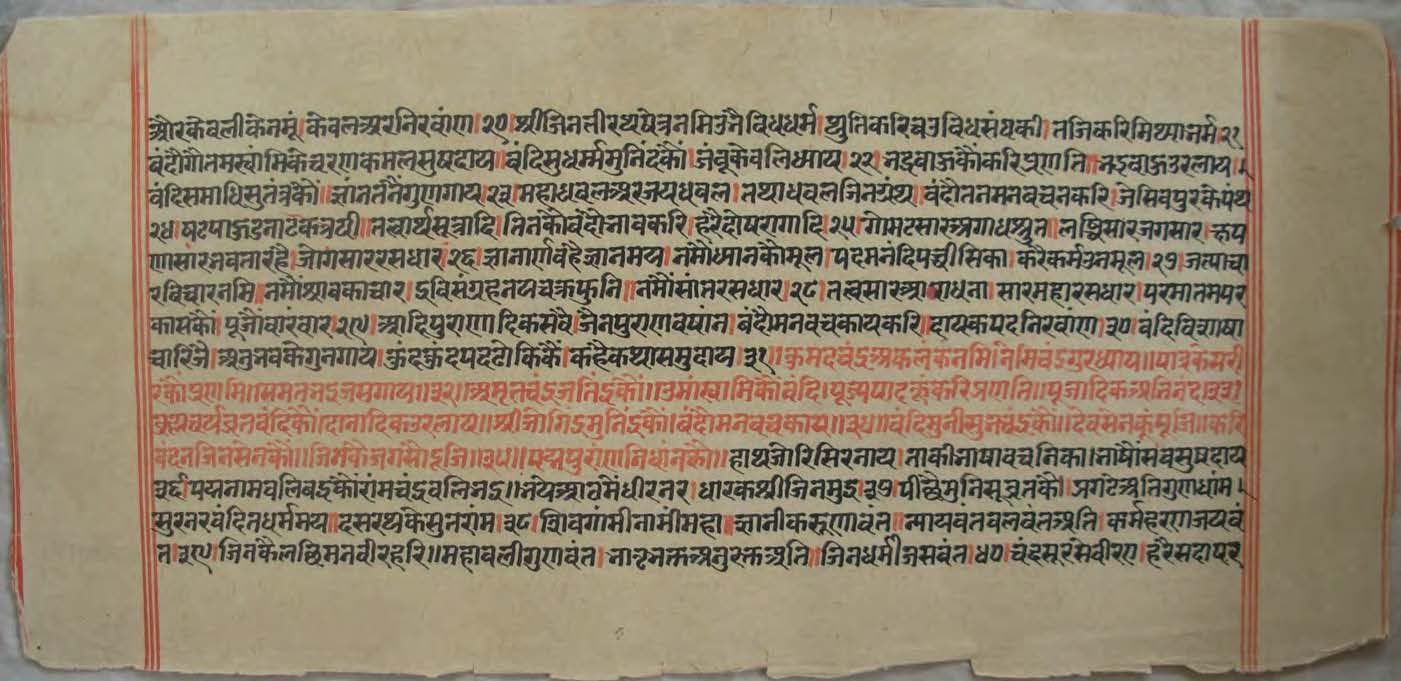 औरकेवलीकेनमूं। केवलअरनिरवांण।२०।श्रीजिनतीरथषेत्रनमिउनैविधधर्म। श्रुतिकरिचउविधसंघकी। नजिकरिमिथ्यानर्म२१
वंदौगौतमस्वांमिकेचरणकमलसुषदाय। वंदिसुधर्म्ममुनिंदकौं। जंबूकेवलिध्याय।२२। नद्रबाऊकौंकरिप्रणाति। नद्रबाऊउरलाय।
वंदिसमाधिसुतंत्रकौं। ज्ञानतनैगुणगाय।२३। महाधवलअरजयधवल। तथाधवलजिनग्रंथ। वंदौतनमनवचनकरि। जेसिवपुरकेपंथ
२४। षटपाऊडनाटकत्रयी। तत्वार्थसूत्रादि। तिनकौवंदौनावकरि। हरैदोषरागादि।२५। गोमटसारअगाधश्रुत। लब्धिसारजगसार। क्षप
णासारनवतारहै। जोगसाररसधार।२६। ज्ञानार्णवहैज्ञानमय। नमौंध्यानकौमूल। पदमनंदिपच्चीसिका। करैकर्मउनमूल।२७। जत्याचा
रविचारनमि। नमौंश्रावकाचार। द्रविसंग्रहनयचक्रफुनि। नमौंसांतरसधार।२८। तत्वसारआराधना। सारमहारसधार। परमातमपर
कासकौं। पूजौंवारंवार।२९। आदिपुराणादिकसवै। जैनपुराणवषांन। वंदौमनवचकायकरि। दायकपदनिरवांण।३०। वंदिविशाषा
चारिजै। अनुनवकेगुनगाय। कुंदकुंदपदढोकिकैं। कहैकथासमुदाय।३१।
॥समतनद्रजसगाय॥३२॥अमृतचंद्रजतिंद्रकौं॥उमांस्वामिकौंवंदि। पूज्यपादकूंकरिप्रणति॥पूजादिकअभिनंद।३३।
वंदिकैं।दानादिकउरलाय॥श्रीजोगिंद्रमुनिंद्रकौं।वंदौमनवचकाय॥३४॥वंदिमुनीसुनचंद्रकौं॥देवसेनकूंपूजि॥करि
वंदनजिनसेनकौं॥जिनकैजगसौदूजि॥३५॥पद्मपुराणनिधांनकौं॥हाथजोरिसिरनाय। ताकीनाषावचनिका। नाषौंसवसुषदाय
पद्मनामवलिनद्रकौरांमचंद्रवलिनद्र॥नयेआठमेंधीरनर। धारकश्रीजिनमुद्र।३७। पीछैमुनिसूव्रतकौ। प्रगटेअतिगुणधांम।
सुरनरवंदितधर्ममय। दसरथकेसुतरांम।३८। शिवगांमीनामीमहा। ज्ञानीकरुणावंत। न्यायवंतवलवंतअति। कर्महरणजयवं
त।३९। जिनकैलछिमनवीरहरि॥महावलीगुणवंत। नातृनक्तअनुरक्तअति। जिनधर्मीजसवंत।४०। चंद्रसूरसेवीरए। हरैसदापर